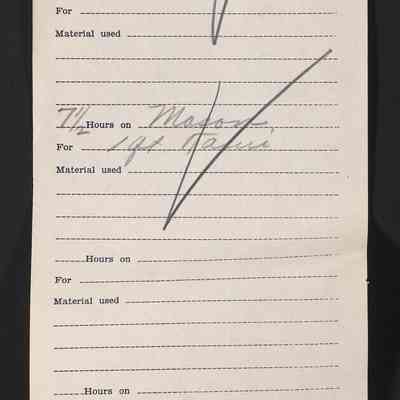 For
Material used
7 1/2 Hours on Mason
For 1 qt
Material used
Hours on
For
Material used
Hours on